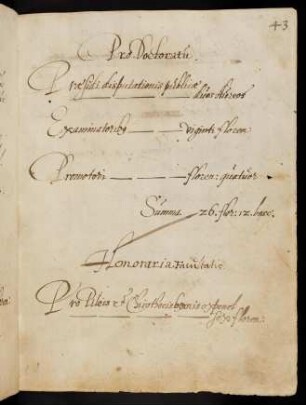 43
Pro Doctoratu
Præsidi disputationis publicæ
duos
Examinatoribus — — viginti floren:
Promotori — — floren: quatuor
Summa 26. flor: 12. bac:
Honoraria Facultatis
Pro Pileo et Chirothecis
floren: